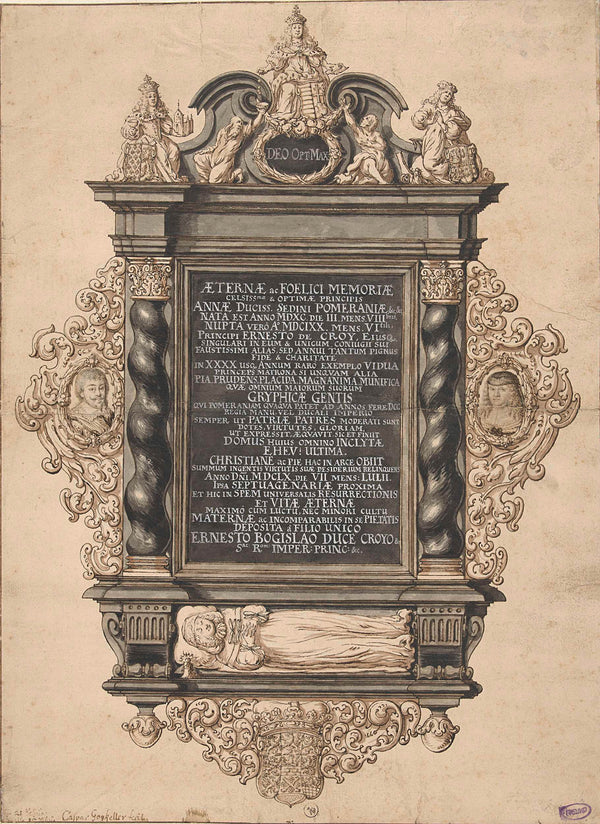 DEO OPT MAX
ÆTERNÆ ac FOELICI MEMORIÆ
CELSISS.mæ & OPTIMÆ PRINCIPIS
ANNÆ DUCISS. SEDINI POMERANIÆ, &c, &c,
NATA EST ANNO MDXC DIE III MENS: VIIIbris,
NUPTA VERO Aº MDCIXX. MENS. VItilis,
PRINCIPI ERNESTO DE CROY, EIUSQ,
SINGULARI IN EUM & UNICUM CONIUGII SUI
FAUSTISSIMI ALIAS, SED ANNUI TANTUM PIGNUS
FIDE & CHARITATE
IN XXXX USQ, ANNUM RARO EXEMPLO VIDUA
PRINCEPS MATRONA SI UNQUAM ALIA
PIA PRUDENS, PLACIDA, MAGNANIMA, MUNIFICA
QVÆ OMNIUM MAIORUM SUORUM
GRYPHICÆ GENTIS
QVI POMERANUM QVAQVA PATET AD ANNOS FERE DCC
REGIA MANU VEL DUCALI IMPERIO
SEMPER UT PATRIÆ PATRES MODERATI SUNT
DOTES, VIRTUTES, GLORIAM,
UT EXPRESSIT, ÆQVAVIT SIC ET FINIIT
DOMUS HUIUS OMNINO INCLYTÆ
EHEV! ULTIMA.
CHRISTIANE ac PIE HAC IN ARCE OBIIT
SUMMUM INGENTIS VIRTUTIS SUÆ DESIDERIUM RELINQUENS
ANNO DNI MDCLX DIE VII MENS: IULII.
IPSA SEPTUAGENARIÆ PROXIMA
ET HIC IN SPEM UNIVERSALIS RESURRECTIONIS
ET VITÆ ÆTERNÆ
MAXIMO CUM LUCTU, NEC MINORI CULTU
MATERNÆ ac INCOMPARABILIS IN SE PIETATIS
DEPOSITA á FILIO UNICO
ERNESTO BOGISLAO DUCE CROYO &c
Sac. Rom. IMPER: PRINC: &c.
Caspar Gopfeller fecit